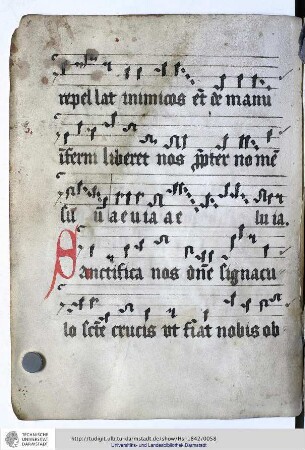 repellat inimicos et de manu
inferni liberet nos ꝓpter nomē
suū a e u ia a e lu ia.
Sanctifica nos dn̄e signacu
lo sct̄e crucis vt fiat nobis ob
TECHNISCHE
UNIVERSITÄT
DARMSTADT
http://tudigit.ulb.tu-darmstadt.de/show/Hs-1842/0058
Universitäts- und Landesbibliothek Darmstadt